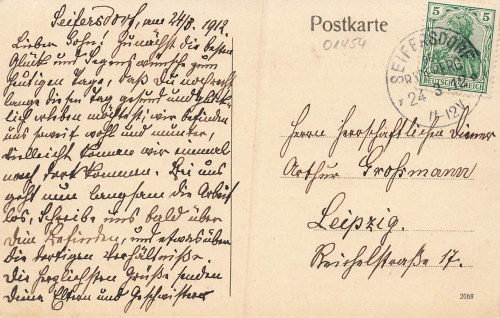 Seifersdorf, am 24/3. 1912.
Lieber Sohn! Zunächst die besten
Glück und Segenswünsche zum
heutigen Tage, daß Du noch recht
lange diesen Tag gesund und glück-
lich erleben möchtest, wir befinden
uns soweit wohl und munter,
vielleicht können wir einmal
nach dort kommen. Bei uns
geht nun langsam die Arbeit
los, Schreibe uns bald über
Dein Befinden, und etwas über
die dortigen Verhältniße.
Die herzlichsten Grüße senden
Deine Eltern und Geschwister
Postkarte
01454
5 5
DEUTSCHES REICH
SEIFERSDORF
24 3 12
11-12V
Herrn herrschaftlichen Diener
Arthur Großmann
Leipzig.
Reichelstraße 17.
2068